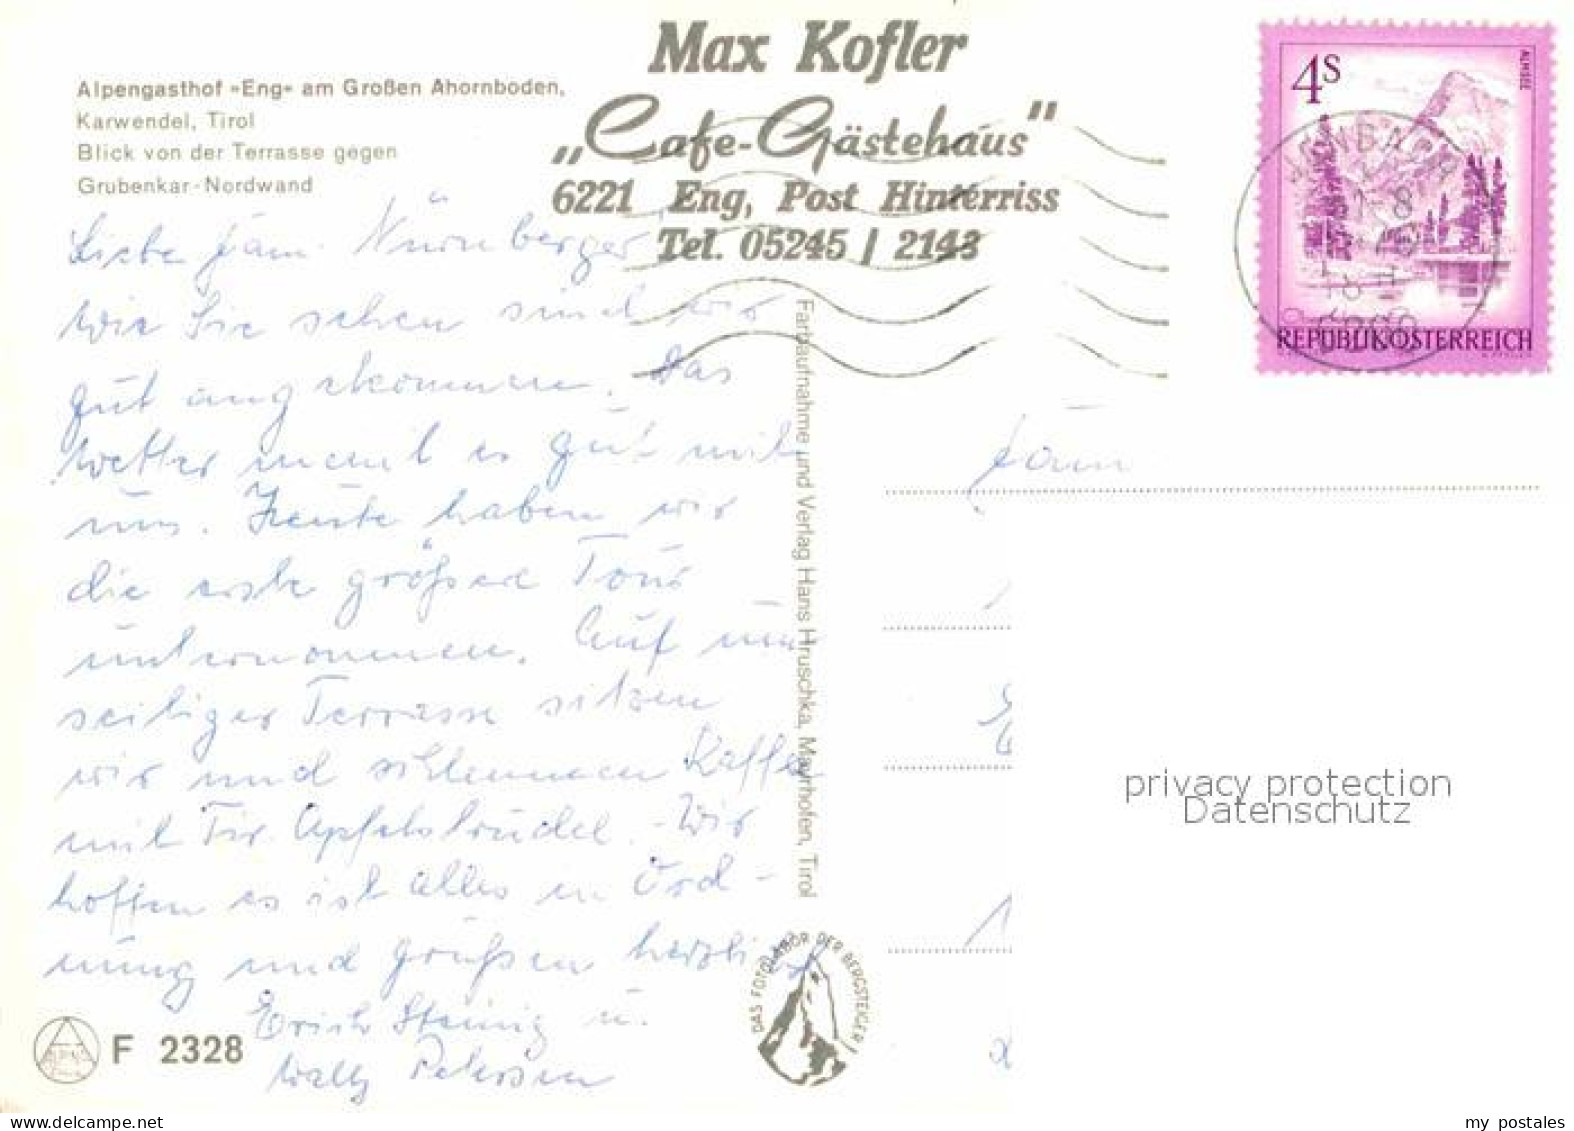 Max Kofler
„Cafe-Gästehaus"
6221 Eng, Post Hinterriss
Tel. 05245 / 2143
Alpengasthof »Eng« am Großen Ahornboden,
Karwendel, Tirol
Blick von der Terrasse gegen
Grubenkar-Nordwand
4S
ALMSEE
REPUBLIK ÖSTERREICH
JENBACH
6200
Liebe Fam. Nürnberger
Wie Sie sehen sind wir
gut angekommen. Das
Wetter meint es gut mit
uns. Heute haben wir
die erste größere Tour
unternommen. Auf
Terrasse sitzen
wir und schlemmen Kaffee
mit Tir. Apfelstrudel. - Wir
hoffen es ist alles in Ord-
nung und grüßen herzlich
Erich u.
Wally Petersen
Fam
Farbaufnahme und Verlag Hans Hruschka, Mayrhofen, Tirol
DAS FOTOLABOR DER BERGSTEIGER
F 2328
privacy protection
Datenschutz
my postales